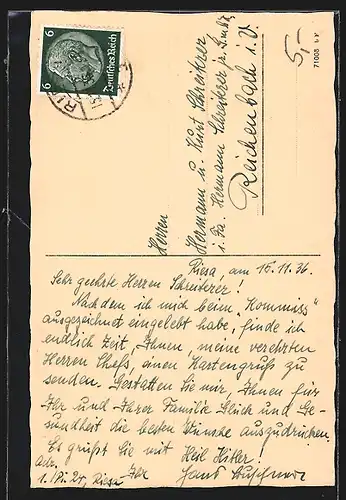 6
6
Deutsches Reich
5,-
71008
Herren
Hermann u. Kurt Schreiterer
i. Fa. Hermann Schreiterer jr. G.m.b.H.
Reichenbach i. V.
Riesa, am 15.11.36.
Sehr geehrte Herren Schreiterer!
Nachdem ich mich beim „Kommiss“
ausgezeichnet eingelebt habe, finde ich
endlich Zeit, Ihnen, meine verehrten
Herren Chefs, einen Kartengruß zu
senden. Gestatten Sie mir, Ihnen für
Ihr und Ihrer Familie Glück und Ge-
sundheit die besten Wünsche auszudrücken.
Es grüßt Sie mit Heil Hitler!
Adr.
Ihr
Riesa